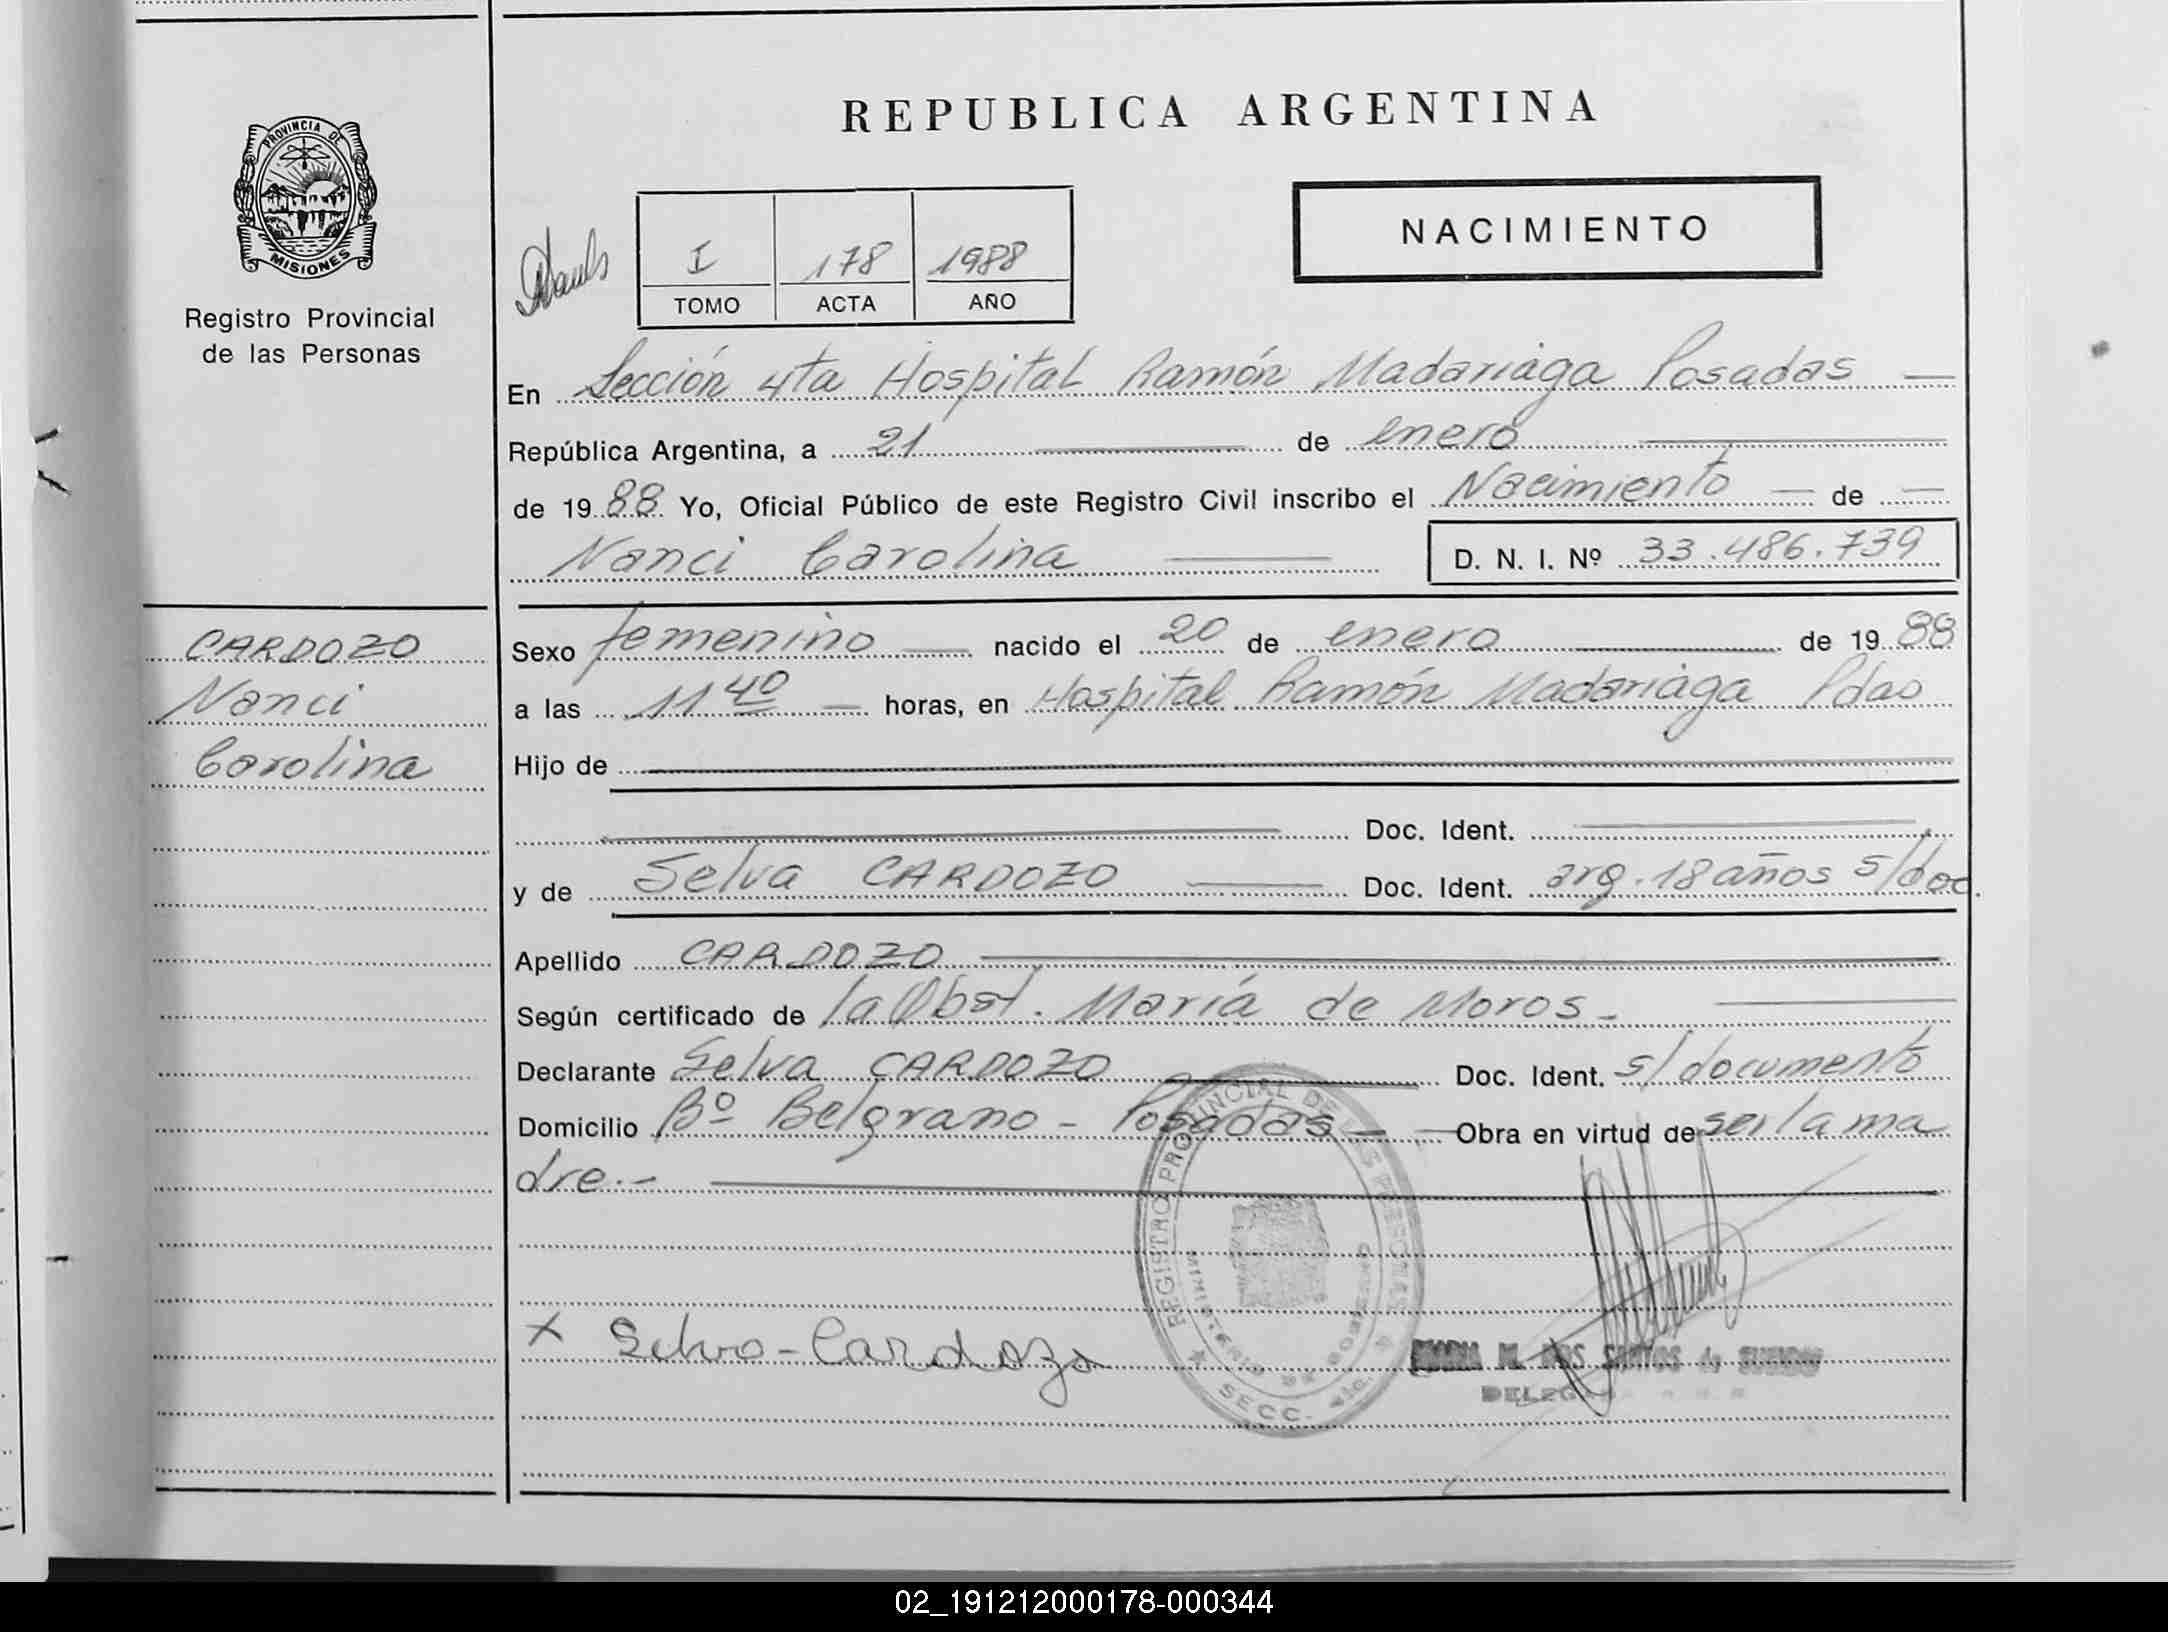 PROVINCIA DE
MISIONES
Registro Provincial
de las Personas
CARDOZO
Nanci
Carolina
REPUBLICA ARGENTINA
NACIMIENTO
I 178 1988
TOMO ACTA AÑO
En Sección 4ta Hospital Ramón Madariaga Posadas —
República Argentina, a 21 — de enero —
de 1988 Yo, Oficial Público de este Registro Civil inscribo el Nacimiento — de —
Nanci Carolina — D. N. I. Nº 33.486.739
Sexo femenino — nacido el 20 de enero — de 1988
a las 11 40 — horas, en Hospital Ramón Madariaga Pdas
Hijo de —
— Doc. Ident. —
y de Selva CARDOZO — Doc. Ident. arg. 18 años s/doc.
Apellido CARDOZO —
Según certificado de la Obst. María de Moros.- —
Declarante Selva CARDOZO — Doc. Ident. s/documento
Domicilio Bº Belgrano - Posadas — Obra en virtud de ser la ma
dre.- —
REGISTRO PROVINCIAL DE LAS PERSONAS
MINISTERIO DE GOBIERNO
SECC.
X Selva - Cardozo
MARIA M. DOS SANTOS de
02_191212000178-000344